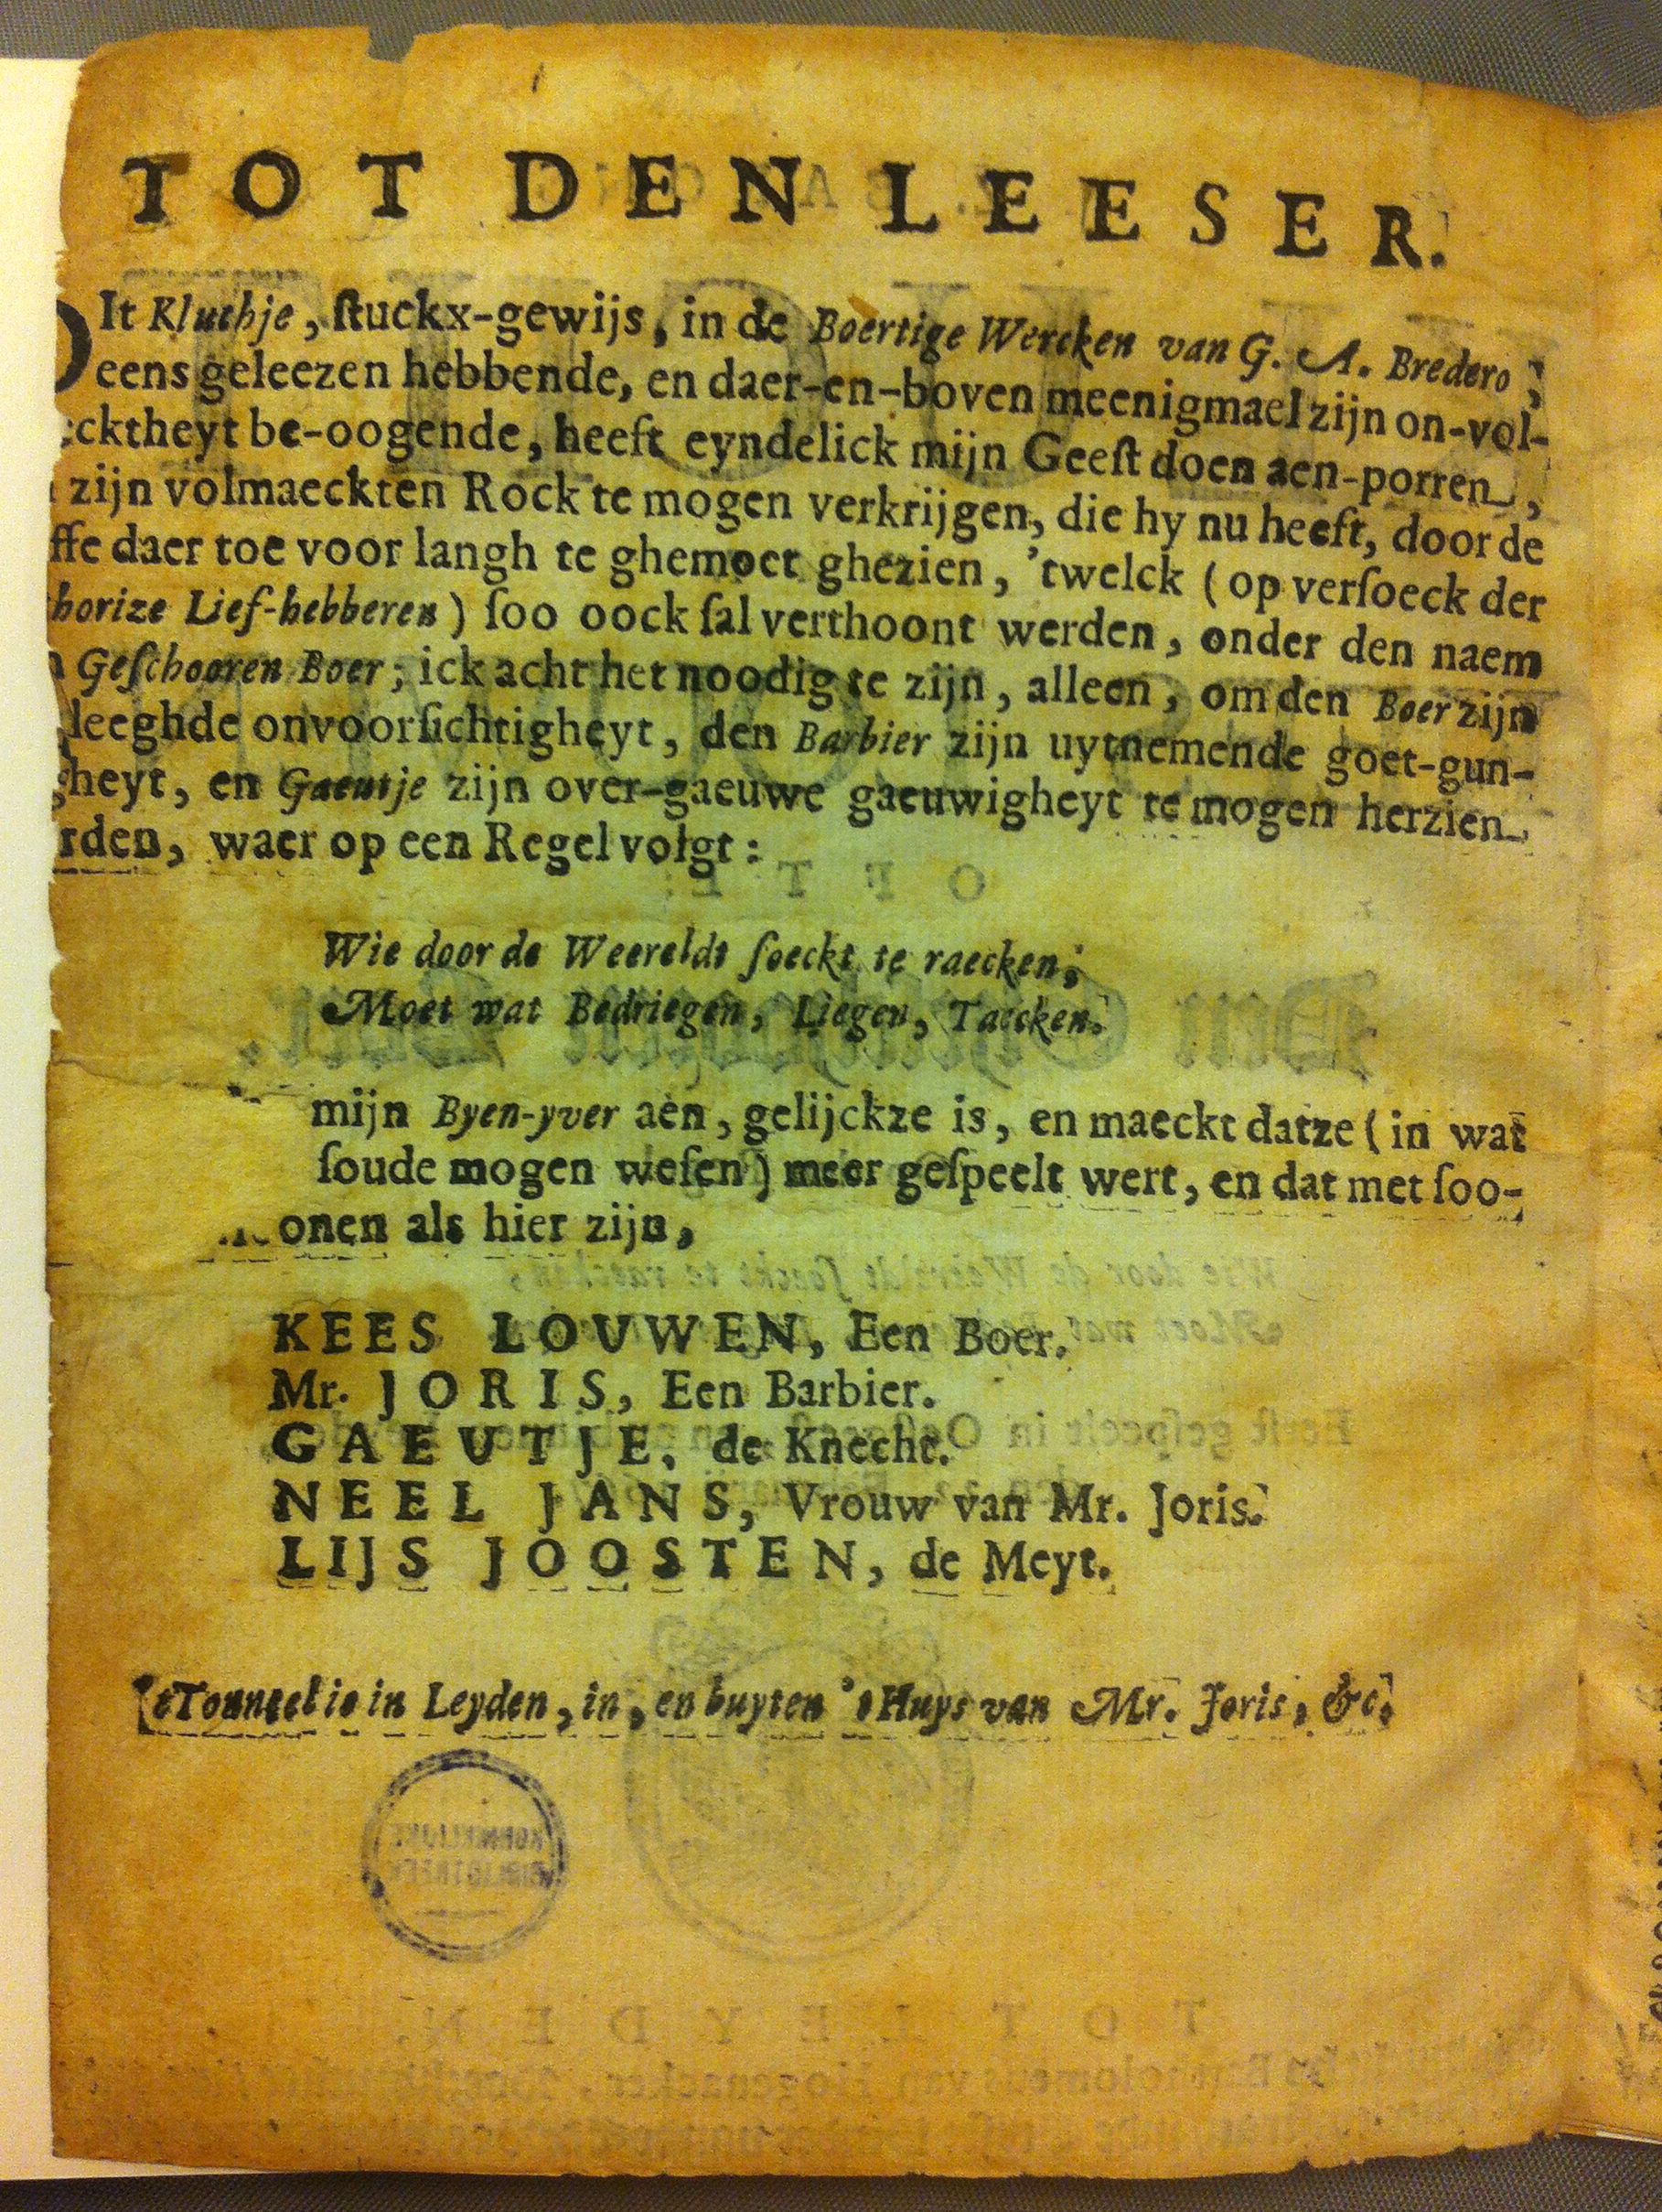 TOT DEN LEESER.
DIt Kluchje, ſtuckx-gewijs, in de Boertige Wercken van G. A. Bredero,
eens geleezen hebbende, en daer-en-boven meenigmael zijn on-vol-
cktheyt be-oogende, heeft eyndelick mijn Geeſt doen aen-porren,
zijn volmaeckten Rock te mogen verkrijgen, die hy nu heeft, door de
ffe daer toe voor langh te ghemoet ghezien, 'twelck (op verſoeck der
horize Lief-hebberen) ſoo oock ſal verthoont werden, onder den naem
Geſchooren Boer; ick acht het noodig te zijn, alleen, om den Boer zijn
leeghde onvoorſichtigheyt, den Barbier zijn uytnemende goet-gun-
gheyt, en Gaeutje zijn over-gaeuwe gaeuwigheyt te mogen herzien
rden, waer op een Regel volgt:
Wie door de Weereldt ſoeckt te raecken;
Moet wat Bedriegen, Liegen, Taecken.
mijn Byen-yver aen, gelijckze is, en maeckt datze (in wat
ſoude mogen weſen) meer geſpeelt wert, en dat met ſoo-
onen als hier zijn,
KEES LOUWEN, Een Boer.
Mr. JORIS, Een Barbier.
GAEUTJE, de Knecht.
NEEL JANS, Vrouw van Mr. Joris.
LIJS JOOSTEN, de Meyt.
'tTonneel is in Leyden, in, en buyten 't Huys van Mr. Joris, &c.
KONINKLIJKE
BIBLIOTHEEK